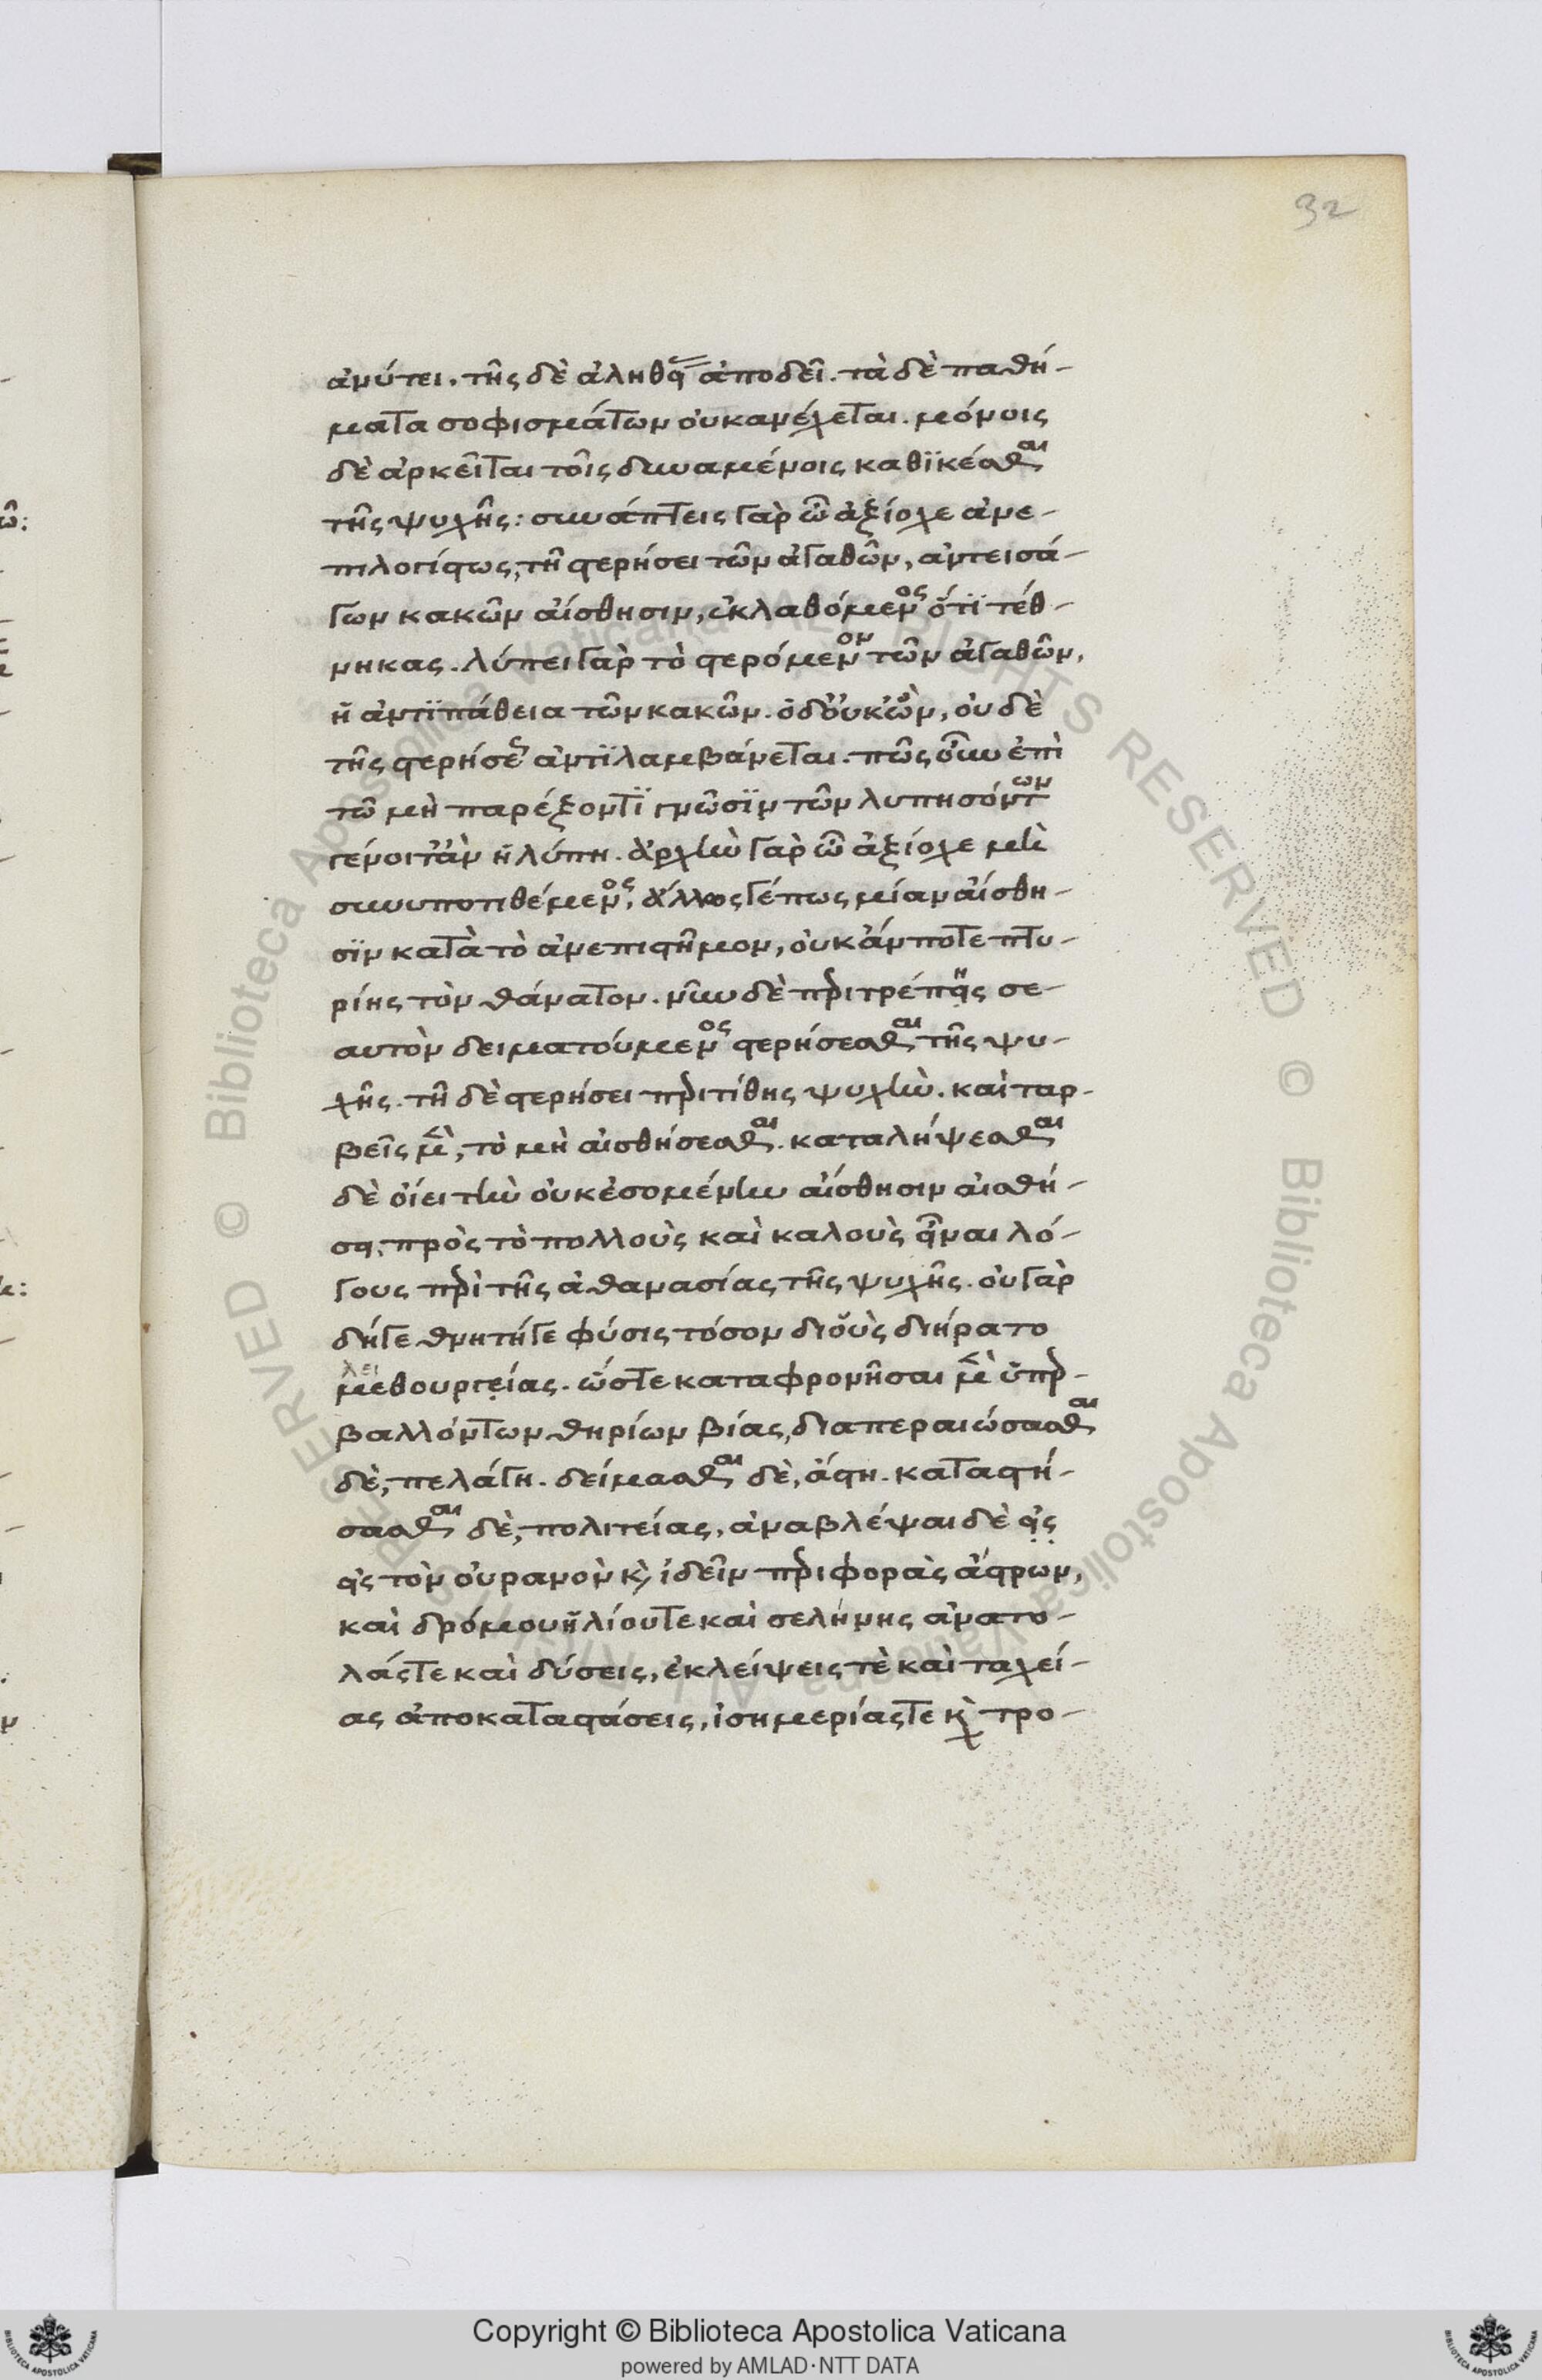 32
ἀνύτει. τῆς δὲ ἀληθείας ἀποδεῖ. τὰ δὲ παθή-
ματα σοφισμάτων οὐκ ἀνέχεται. μόνοις
δὲ ἀρκεῖται τοῖς δυναμένοις καθϊκέσθαι
τῆς ψυχῆς: συνάπτεις γὰρ ὦ ἀξίοχε ἀνε-
πιλογίστως, τῆ στερήσει τῶν ἀγαθῶν, ἀντεισά-
γων κακῶν αἴσθησιν, ἐκλαθόμενος ὅτϊ τέθ-
νηκας. λύπει γὰρ τὸ στερόμενον τῶν ἀγαθῶν,
ἡ ἀντϊπάθεια τῶν κακῶν. ὁ δ' οὐκ ὢν, οὐδὲ
τῆς στερήσεως ἀντϊλαμβάνεται. πῶς οὖν ἐπὶ
τῶ μὴ παρέξοντϊ γνῶσϊν τῶν λυπησόντων
γένοιτ' ἂν ἡ λύπη. ἀρχὴν γὰρ ὦ ἀξίοχε μὴ
συνυποτιθέμενος, ἄλλος γέ πως μίαν αἴσθη-
σϊν κατὰ τὸ ἀνεπιστῆμον, οὐκ ἄν ποτε πτυ-
ρίης τὸν θάνατον. νῦν δὲ περιτρέπεις σε-
αυτὸν δειματούμενος στερήσεσθαι τῆς ψυ-
χῆς. τῆ δὲ στερήσει περιτίθης ψυχὴν. καὶ ταρ-
βεῖς μὲν, τὸ μὴ αἰσθήσεσθαι. καταλήψεσθαι
δὲ οἴει τὴν οὐκ ἐσομένην αἴσθησιν αἰσθή-
σει, πρὸς τὸ πολλοὺς καὶ καλοὺς εἶναι λό-
γους περὶ τῆς ἀθανασίας τῆς ψυχῆς. οὐ γὰρ
δήγε θνητήγε φύσις τόσον διοὺς διήρατο
λει
μεθουργείας. ὥστε καταφρονῆσαι μὲν ὑπερ-
βαλλόντων θηρίων βίας, διαπεραιώσασθαι
δὲ, πελάγη. δείμασθαι δὲ, ἄστη. καταστή-
σασθαι δὲ, πολιτείας, ἀναβλέψαι δὲ εἰς
εἰς τὸν οὐρανὸν καὶ ἰδεῖν περιφορὰς ἄστρων,
καὶ δρόμου ἡλίουτε καὶ σελήνης ἀνατο-
λάςτε καὶ δύσεις, ἐκλείψεις τὲ καὶ ταχεί-
ας ἀποκαταστάσεις, ἰσημερίαςτε καὶ τρο-
Copyright © Biblioteca Apostolica Vaticana
powered by AMLAD·NTT DATA